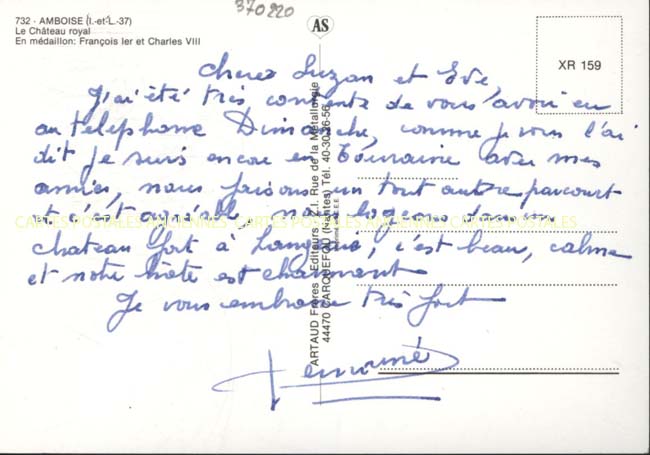 370220
732 - AMBOISE (I.-et-L.-37)
Le Château royal
En médaillon: François Ier et Charles VIII
AS
XR 159
Cheres Suzon et Eve,
J'ai été très contente de vous avoir eu
au telephone Dimanche, comme je vous l'ai
dit je suis encore en Touraine avec mes
amies, nous faisons un tout autre parcourt
et c'est nous logeons dans un
chateau fort à Langeais, c'est beau, calme
et notre hôte est charmant
Je vous embrasse très fort
CARTES POSTALES ANCIENNES CARTES POSTALES ANCIENNES CARTES POSTALES ANCIENNES
ARTAUD Frères - Editeurs - Z.I. Rue de la Métallurgie
44470 CARQUEFOU (Nantes) Tél. 40-30-26-56